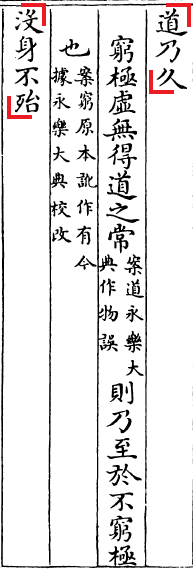 道乃久
窮極虛無得道之常案道永樂大典作物誤則乃至於不窮極
也案窮原本訛作有今據永樂大典校改
沒身不殆